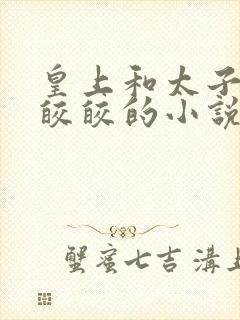 皇上和太子
皎皎的小說
蟹蜜七吉溝上